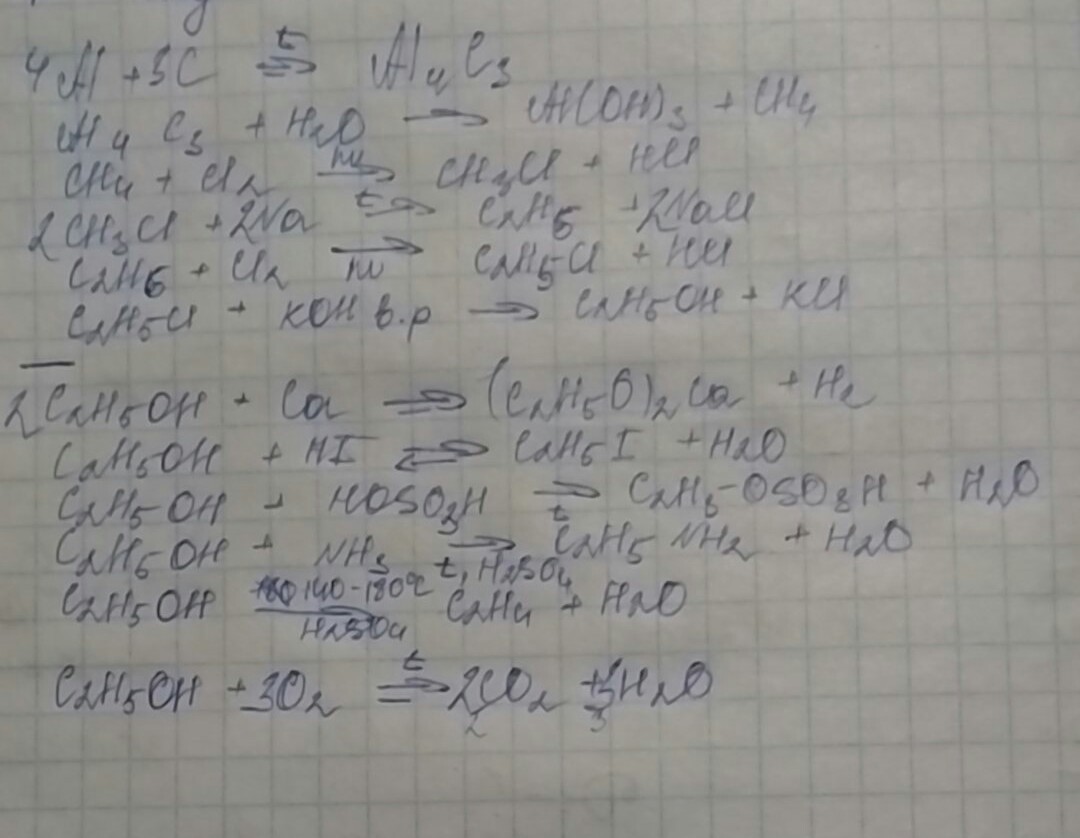 4Al + 3C ⇒ t Al4C3
Al4C3 + H2O → Al(OH)3 + CH4
CH4 + Cl2 hν → CH3Cl + HCl
2CH3Cl + 2Na t → C2H6 + 2NaCl
C2H6 + Cl2 → hν C2H5Cl + HCl
C2H5Cl + KOH в.р → C2H5OH + KCl
2C2H5OH + Ca → (C2H5O)2Ca + H2
C2H5OH + HI ⇄ C2H5I + H2O
C2H5-OH + HOSO3H → t C2H5-OSO3H + H2O
C2H5OH + NH3 → t, H2SO4 C2H5NH2 + H2O
C2H5OH 140-180°C → H2SO4 C2H4 + H2O
C2H5OH + 3O2 t → 2CO2 + 3H2O
2 3